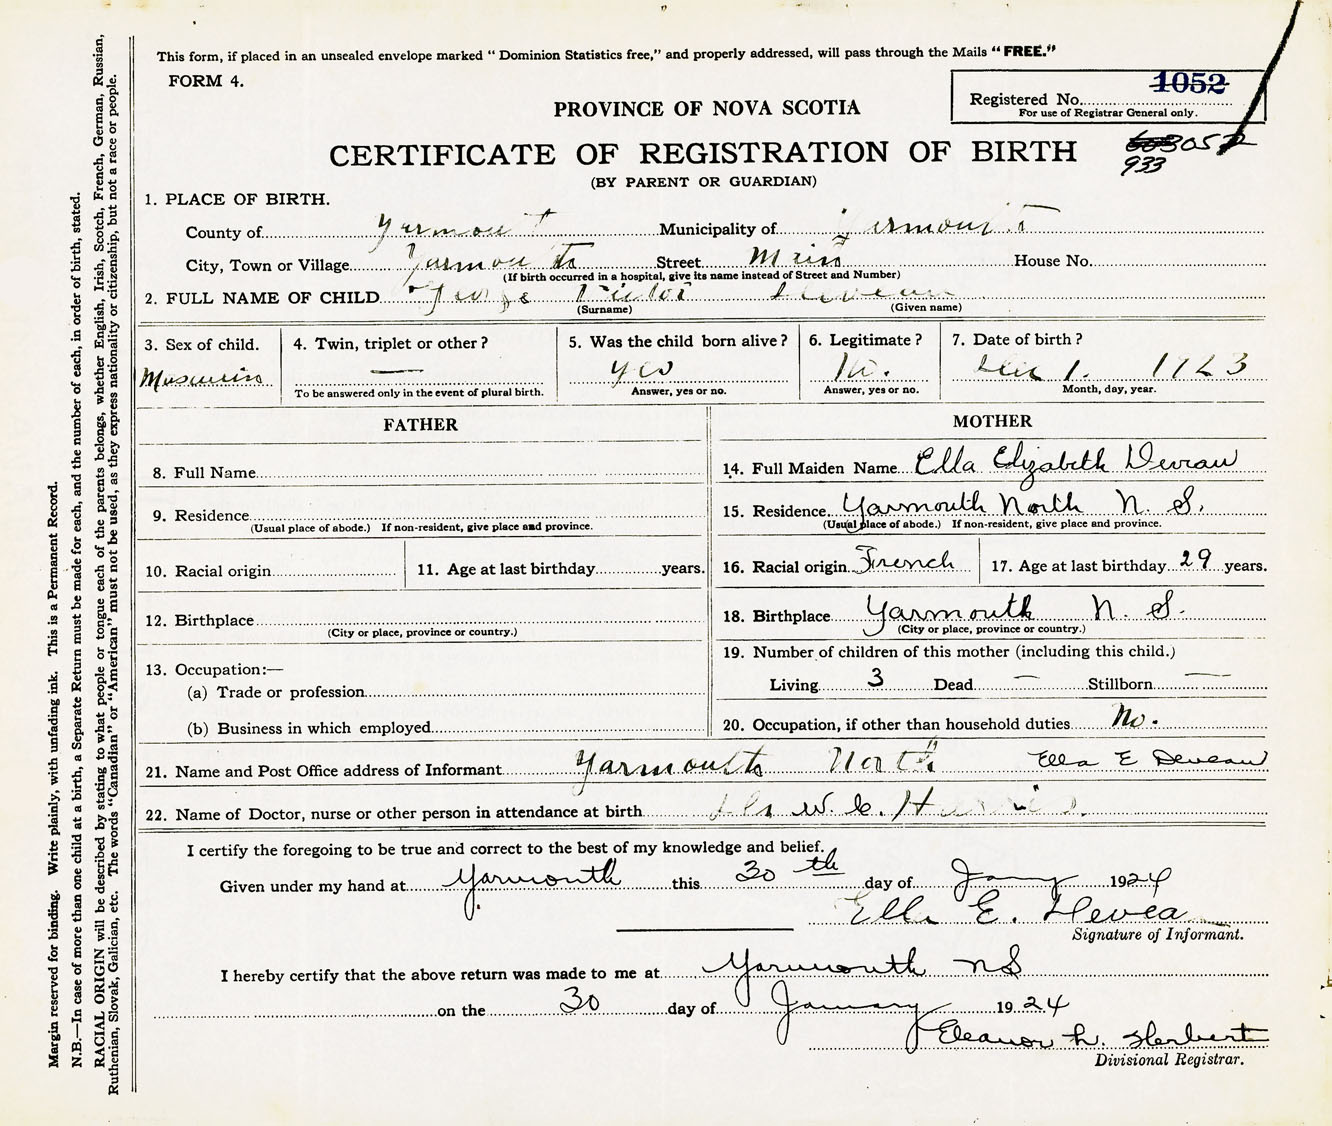 This form, if placed in an unsealed envelope marked "Dominion Statistics free," and properly addressed, will pass through the Mails "FREE."
FORM 4.
1052
Registered No.
For use of Registrar General only.
PROVINCE OF NOVA SCOTIA
CERTIFICATE OF REGISTRATION OF BIRTH
933
(BY PARENT OR GUARDIAN)
1. PLACE OF BIRTH.
County of Yarmouth Municipality of Yarmouth
City, Town or Village Yarmouth Street Main House No.
(If birth occurred in a hospital, give its name instead of Street and Number)
2. FULL NAME OF CHILD George Victor Deveau
(Surname) (Given name)
3. Sex of child. 4. Twin, triplet or other? 5. Was the child born alive? 6. Legitimate? 7. Date of birth?
— yes No. Dec 1. 1923
To be answered only in the event of plural birth. Answer, yes or no. Answer, yes or no. Month, day, year.
FATHER MOTHER
8. Full Name 14. Full Maiden Name Ella Elizabeth Deveau
9. Residence 15. Residence Yarmouth North N. S.
(Usual place of abode.) If non-resident, give place and province. (Usual place of abode.) If non-resident, give place and province.
10. Racial origin 11. Age at last birthday years. 16. Racial origin French 17. Age at last birthday 29 years.
12. Birthplace 18. Birthplace Yarmouth N. S.
(City or place, province or country.) (City or place, province or country.)
13. Occupation:— 19. Number of children of this mother (including this child.)
(a) Trade or profession Living 3 Dead — Stillborn —
(b) Business in which employed 20. Occupation, if other than household duties No.
21. Name and Post Office address of Informant Yarmouth North Ella E Deveau
22. Name of Doctor, nurse or other person in attendance at birth Dr W. C. Harris.
I certify the foregoing to be true and correct to the best of my knowledge and belief.
Given under my hand at Yarmouth this 30th day of Jany 1924
Ella E. Devea
Signature of Informant.
I hereby certify that the above return was made to me at Yarmouth NS
on the 30 day of January 1924
Eleanor L. Herbert
Divisional Registrar.
Margin reserved for binding. Write plainly, with unfading ink. This is a Permanent Record.
N.B.—In case of more than one child at a birth, a Separate Return must be made for each, and the number of each, in order of birth, stated.
RACIAL ORIGIN will be described by stating to what people or tongue each of the parents belongs, whether English, Irish, Scotch, French, German, Russian,
Ruthenian, Slovak, Galician, etc. The words "Canadian" or "American" must not be used, as they express nationality or citizenship, but not a race or people.